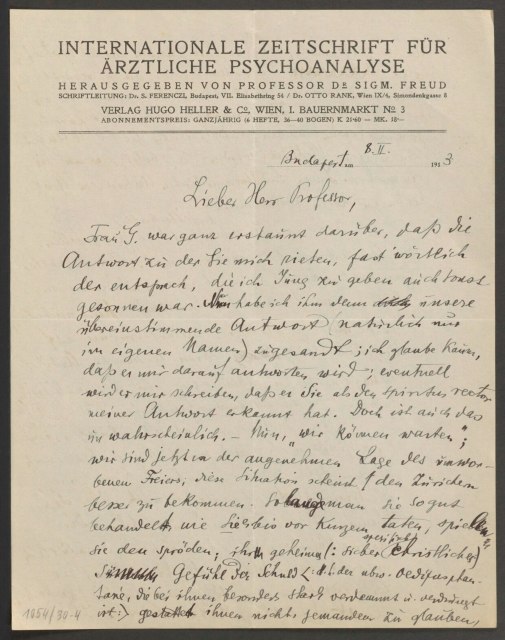 INTERNATIONALE ZEITSCHRIFT FÜR
ÄRZTLICHE PSYCHOANALYSE
HERAUSGEGEBEN VON PROFESSOR DR. SIGM. FREUD
SCHRIFTLEITUNG: DR. S. FERENCZI, Budapest, VII. Elisabethring 54 / DR. OTTO RANK, Wien IX/4, Simondenkgasse 8
VERLAG HUGO HELLER & Co, WIEN, I. BAUERNMARKT No 3
ABONNEMENTSPREIS: GANZJÄHRIG (6 HEFTE, 36—40 BOGEN) K 21·60 = MK. 18·—
Budapest am 8. II. 1913
Lieber Herr Professor,
Frau G. war ganz erstaunt darüber, daß die
Antwort zu der Sie mich rieten, fast wörtlich
der entsprach, die ich Jung zu geben auch sonst
gesonnen war. Nun habe ich ihm denn unsere
übereinstimmende Antwort (natürlich nur
im eigenen Namen) zugesandt; ich glaube kaum,
daß er mir darauf antworten wird; eventuell
wird er mir schreiben, daß er Sie als den spiritus rector
meiner Antwort erkannt hat. Doch ist auch das
unwahrscheinlich. – Nun, "wir können warten";
wir sind jetzt in der angenehmen Lage des umwor-
benen Freiers; diese Situation scheint den Zürichern
besser zu bekommen. Solange man sie so gut
behandelt, wie Sie es bis vor Kurzem taten, spielen
sie den Spröden; ihr geheimes (: sicher spezifisch christliches)
Gefühl der Schuld (d. h. der unbew. Oedipusphan-
tasie, die bei ihnen besonders stark verdrängt
ist:) gestattet ihnen nicht, jemandem zu glauben,
1054/30-4